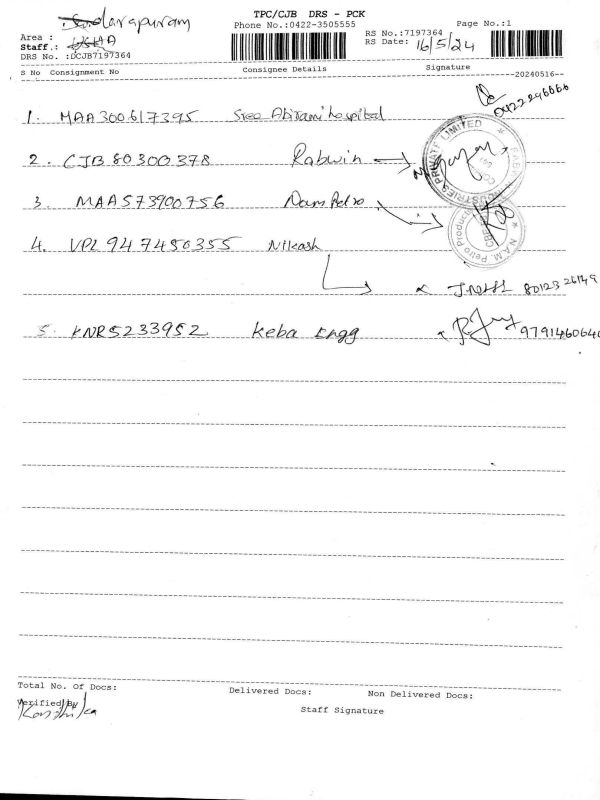 TPC/CJB DRS - PCK
Phone No.:0422-3505555
Page No.:1
Area :
Staff.:
DRS No. :DCJB7197364
RS No.:7197364
RS Date: 16/5/24
S No Consignment No Consignee Details Signature
--20240516--
1. MAA300617395 Sree Abirami hospital
0422246666
2. CJB 80300378 Rabwin
3. MAA573900756 Nam Petro
4. VPL 947480355 Nikash
8012326149
5. KNR5233952 Keba Engg
PRIVATE LIMITED
N.A.M. Petro
Total No. Of Docs:
Delivered Docs:
Non Delivered Docs:
Verified By
Staff Signature